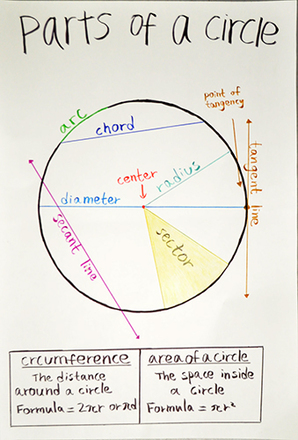 parts of a circle
point of
tangency
arc
chord
center
radius
tangent line
diameter
secant line
sector
crcumference
The distance
around a circle
Formula = 2πr or πd
area of a circle
The space inside
a circle
Formula = πr²